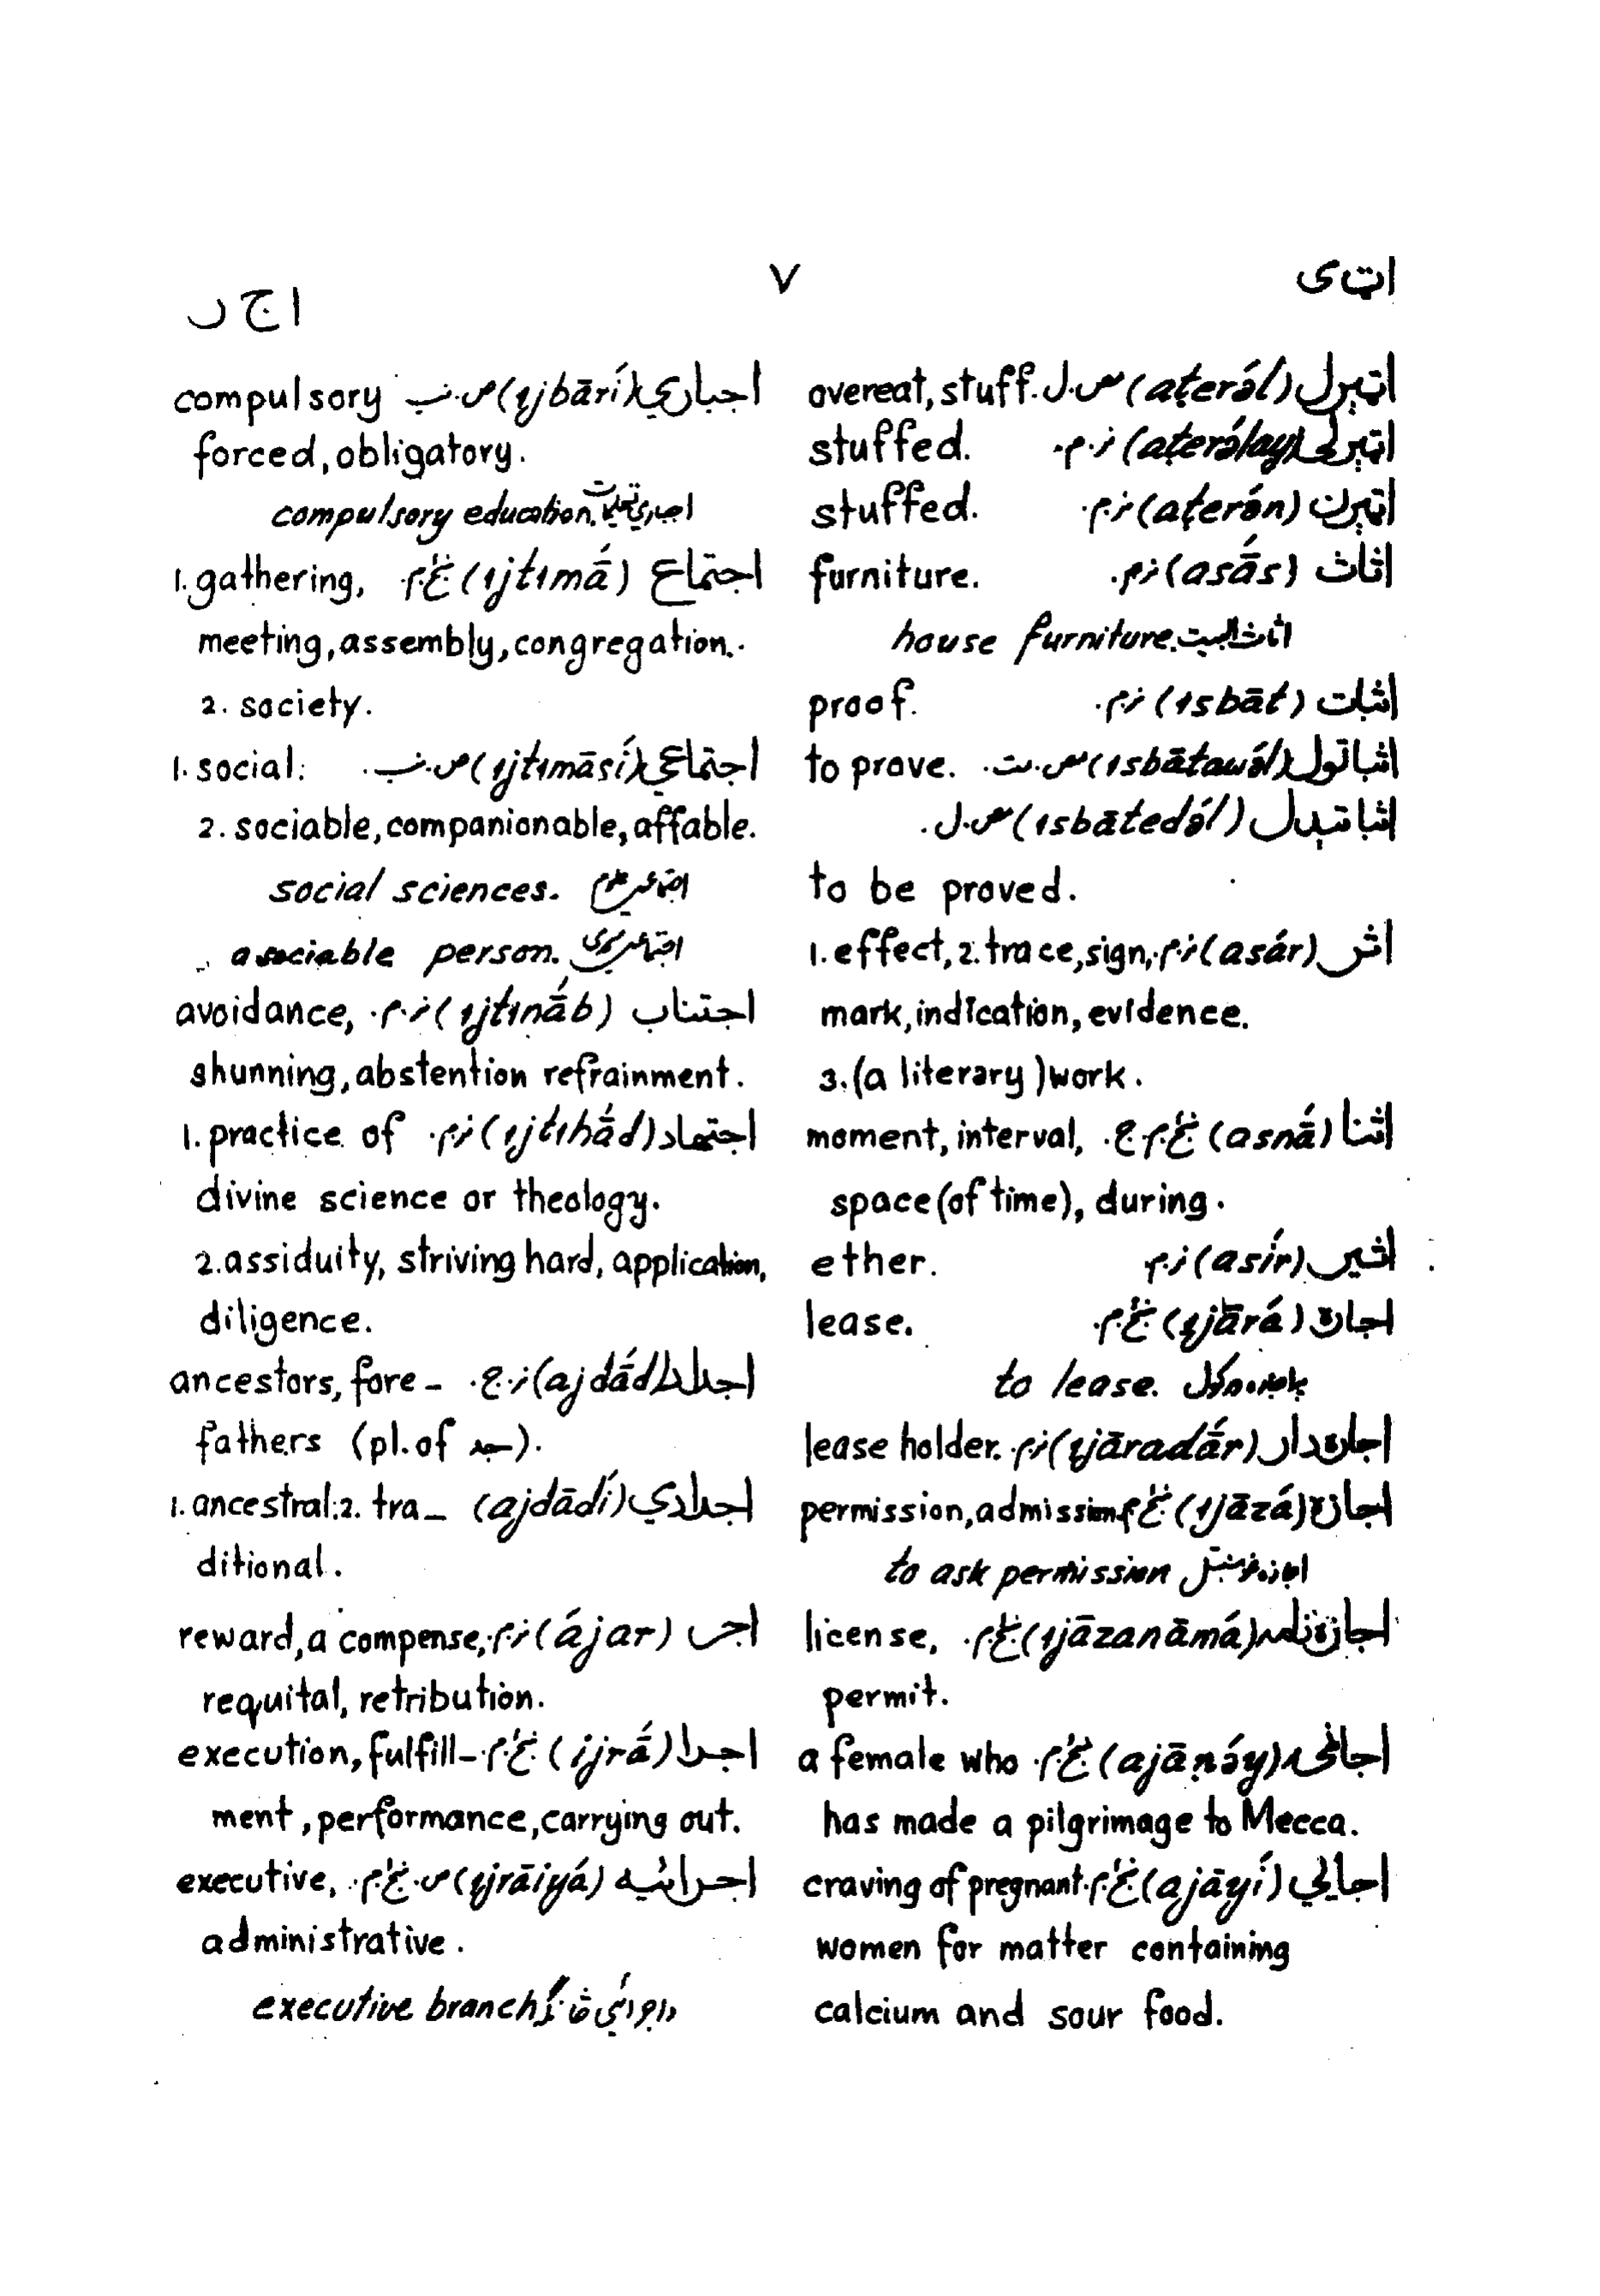 اټی
۷
اج ر
اټېرل (aṭerə́l) مص.ل. overeat, stuff.
اټېرلی (aṭerə́lay) ن.م. stuffed.
اټېرن (aṭerə́n) ن.م. stuffed.
اثاث (asā́s) ن.م. furniture.
اثاث البيت. house furniture.
اثبات (ısbāt) ن.م. proof.
اثباتول (ısbātawə́l) مص.مت. to prove.
اثباتېدل (ısbātedə́l) مص.ل.
to be proved.
اثر (asár) ن.م. 1. effect, 2. trace, sign,
mark, indication, evidence.
3. (a literary) work.
اثنا (asnā́) moment, interval,
space (of time), during.
اثير (asír) ن.م ether.
اجاره (ıjārá) lease.
to lease.
اجاره‌دار (ıjāradā́r) ن.م. lease holder.
اجازه (ıjāzá) permission, admission.
to ask permission
اجازه‌نامه (ıjāzanāmá) license,
permit.
(ajāṇə́y) a female who
has made a pilgrimage to Mecca.
اجايي (ajāyí) craving of pregnant
women for matter containing
calcium and sour food.
اجباري (ıjbārí) ص.نب. compulsory
forced, obligatory.
compulsory education.
اجتماع (ıjtımā́) 1. gathering,
meeting, assembly, congregation.
2. society.
اجتماعي (ıjtımāsí) ص.نب. 1. social:
2. sociable, companionable, affable.
social sciences.
a sociable person.
اجتناب (ıjtınā́b) ن.م. avoidance,
shunning, abstention refrainment.
اجتهاد (ıjtıhā́d) ن.م. 1. practice of
divine science or theology.
2. assiduity, striving hard, application,
diligence.
اجداد (ajdā́d) ن.ج. ancestors, fore-
fathers (pl. of جد).
اجدادي (ajdādí) 1. ancestral: 2. tra-
ditional.
اجر (ájar) ن.م. reward, a compense,
requital, retribution.
اجرا (ijrā́) execution, fulfill-
ment, performance, carrying out.
اجرائيه (ıjrāiyá) executive,
administrative.
executive branch